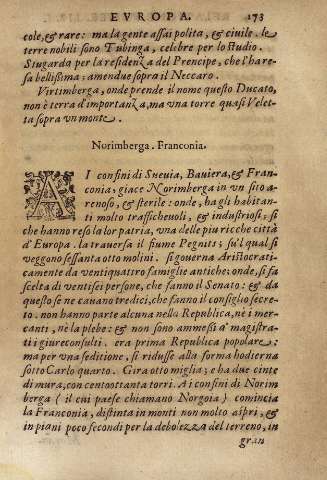 EVROPA. 173
cole, & rare: ma la gente assai polita, & ciuile. le
terre nobili sono Tubinga, celebre per lo studio.
Stugarda per la residenza del Prencipe, che l'ha re-
sa bellissima: amendue sopra il Neccaro.
Virtimberga, onde prende il nome questo Ducato,
non è terra d'importanza, ma vna torre quasi Velet
ta sopra vn monte.
Norimberga. Franconia.
A I confini di Sueuia, Bauiera, & Fran-
conia, giace Norimberga in vn sito a-
renoso, & sterile: onde, hagli habitan-
ti molto trafficheuoli, & industriosi, si
che hanno reso la lor patria, vna delle piu ricche città
d'Europa. la trauersa il fiume Pegnits; su'l qual si
veggono sessanta otto molini. si gouerna Aristocrati-
camente da ventiquattro famiglie antiche: onde, si fa
scelta di ventisei persone, che fanno il Senato: & da
questo se ne cauano tredici, che fanno il consiglio secre-
to. non hanno parte alcuna nella Republica, nè i mer-
canti, nè la plebe: & non sono ammessi a' magistra-
ti i giureconsulti. era prima Republica popolare:
ma per vna seditione, si ridusse alla forma hodierna
sotto Carlo quarto. Gira otto miglia; e ha due cinte
di mura, con centoottanta torri. A i confini di Norim
berga (il cui paese chiamano Norgoia) comincia
la Franconia, distinta in monti non molto aspri, &
in piani poco secondi per la debolezza del terreno, in
gran